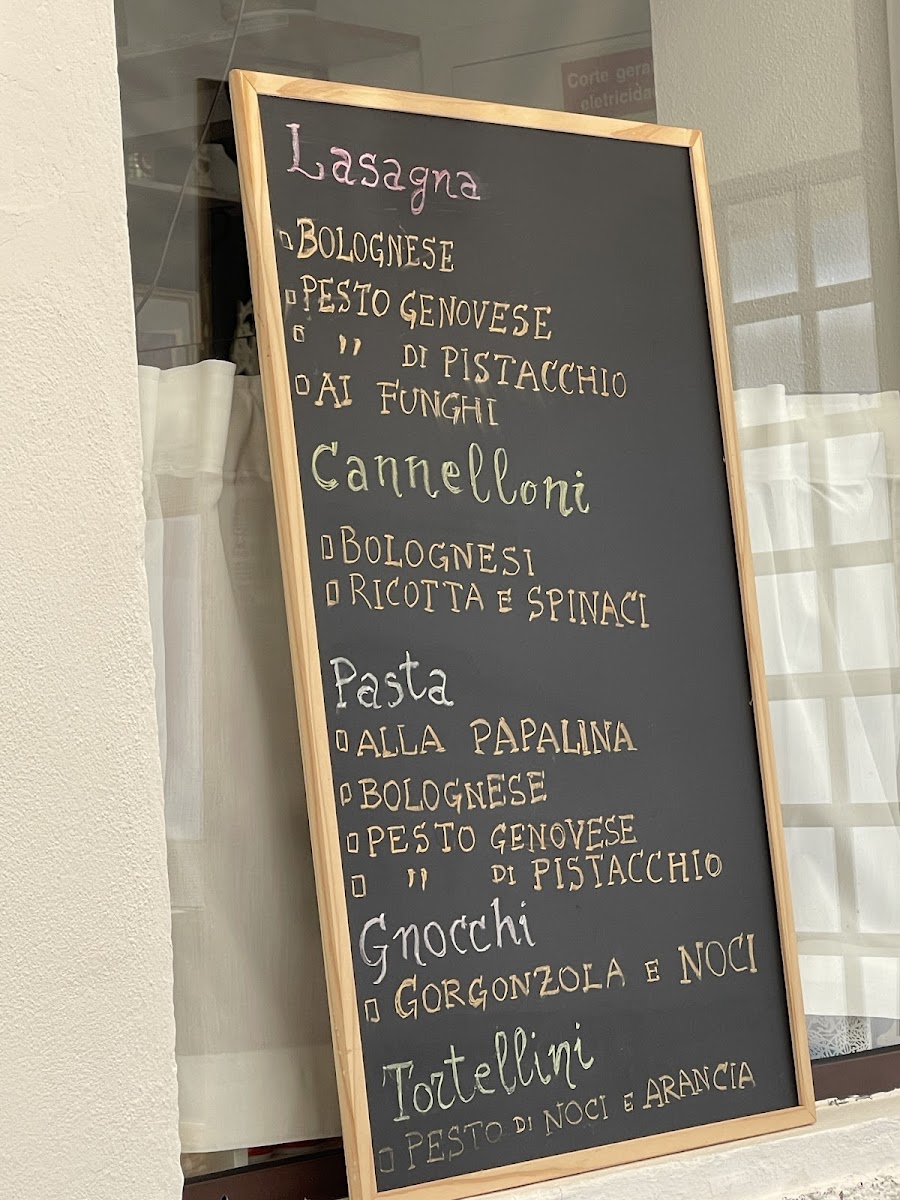 Corte gera
eletricida
Lasagna
▯ BOLOGNESE
▯ PESTO GENOVESE
▯ " DI PISTACCHIO
▯ AI FUNGHI
Cannelloni
▯ BOLOGNESI
▯ RICOTTA E SPINACI
Pasta
▯ ALLA PAPALINA
▯ BOLOGNESE
▯ PESTO GENOVESE
▯ " DI PISTACCHIO
Gnocchi
▯ GORGONZOLA E NOCI
Tortellini
▯ PESTO DI NOCI E ARANCIA